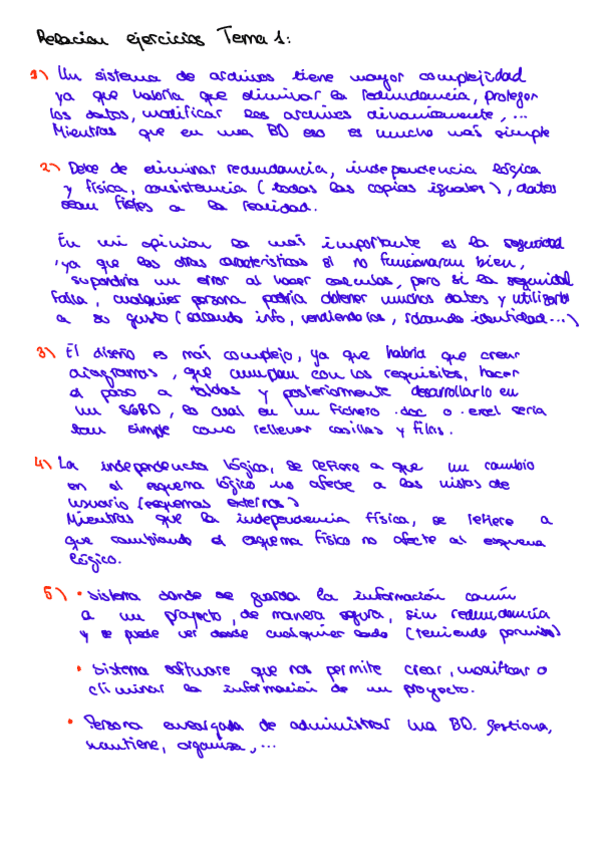 Relacion ejercicios Tema 1:
1) Un sistema de archivos tiene mayor complejidad
ya que habría que eliminar la redundancia, proteger
los datos, modificar los archivos dinamicamente, ...
Mientras que en una BD eso es mucho más simple
2) Debe de eliminar redundancia, independencia lógica
y física, consistencia (todas las copias iguales), datos
sean fieles a la realidad.
En mi opinion la más importante es la seguridad
, ya que las otras caracteristicas si no funcionaran bien,
supondria un error al hacer calculos, pero si la seguridad
falla, cualquier persona podría obtener muchos datos y utilizarlo
a su gusto (sacando info, vendiendolos, robando identidad...)
3) El diseño es más complejo, ya que habria que crear
diagramas, que cumplan con los requisitos, hacer
el paso a tablas y posteriormente desarrollarlo en
un SGBD, lo cual en un fichero .doc o .excel seria
tan simple como rellenar casillas y filas.
4) La independencia lógica, se refiere a que un cambio
en el esquema lógico no afecte a las vistas de
usuario (esquemas externos)
Mientras que la independencia física, se refiere a
que cambiando el esquema físico no afecte al esquema
lógico.
5) • Sistema donde se guarda la información común
a un proyecto, de manera segura, sin redundancía
y se puede ver desde cualquier lado (teniendo permiso)
• Sistema software que nos permite crear, modificar o
eliminar la informacion de un proyecto.
• Persona encargada de administrar una BD. Gestiona,
mantiene, organiza, ...